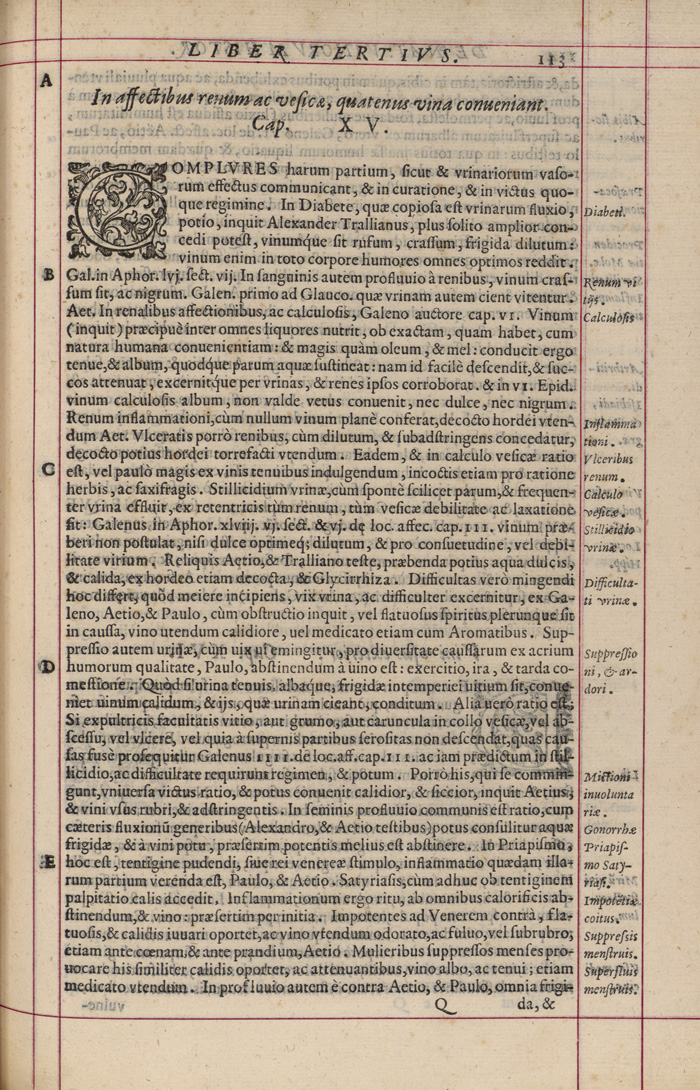 LIBER TERTIVS.
113
A
In affectibus renum ac vesicæ, quatenus vina conueniant.
Cap. XV.
COMPLVRES harum partium, sicut & vrinariorum vaso-
rum effectus communicant, & in curatione, & in victus quo-
que regimine. In Diabete, quæ copiosa est vrinarum fluxio,
Diabeti.
potio, inquit Alexander Trallianus, plus solito amplior con-
cedi potest, vinumque sit rufum, crassum, frigida dilutum:
vinum enim in toto corpore humores omnes optimos reddit.
B
Gal. in Aphor. lvj. sect. vij. In sanguinis autem profluuio à renibus, vinum cras-
Renum vi
sum sit, ac nigrum. Galen. primo ad Glauco. quæ vrinam autem cient vitentur.
tijs.
Aet. In renalibus affectionibus, ac calculosis, Galeno auctore cap. VI. Vinum
Calculosis
(inquit) præcipuè inter omnes liquores nutrit, ob exactam, quam habet, cum
natura humana conuenientiam: & magis quàm oleum, & mel: conducit ergo
tenue, & album, quodque parum aquæ sustineat: nam id facilè descendit, & suc-
cos attenuat, excernitque per vrinas, & renes ipsos corroborat. & in VI. Epid.
vinum calculosis album, non valde vetus conuenit, nec dulce, nec nigrum.
Renum inflammationi, cùm nullum vinum planè conferat, decocto hordei vten-
Inflamma
dum Aet. Vlceratis porrò renibus, cùm dilutum, & subadstringens concedatur,
tioni.
decocto potius hordei torrefacti vtendum. Eadem, & in calculo vesicæ ratio
Vlceribus
C
est, vel paulò magis ex vinis tenuibus indulgendum, incoctis etiam pro ratione
renum.
herbis, ac saxifragis. Stillicidium vrinæ, cùm spontè scilicet parum, & frequen-
Calculo
ter vrina effluit, ex retentricis tùm renum, tùm vesicæ debilitate ac laxatione
vesicæ.
fit: Galenus in Aphor. xlviij. vj. sect. & vj. de loc. affec. cap. III. vinum præ-
Stillicidio
beri non postulat, nisi dulce optimeq; dilutum, & pro consuetudine, vel debi-
vrinæ.
litate virium. Reliquis Aetio, & Tralliano teste, præbenda potius aqua dulcis,
& calida, ex hordeo etiam decocta, & Glycirrhiza. Difficultas verò mingendi
Difficulta-
hoc differt, quòd meiere incipiens, vix vrina, ac difficulter excernitur, ex Ga-
ti vrinæ.
leno, Aetio, & Paulo, cùm obstructio inquit, vel flatuosus spiritus plerunque sit
in caussa, vino vtendum calidiore, uel medicato etiam cum Aromatibus. Sup-
pressio autem urinæ, cùm uix ul emingitur, pro diuersitate caussarum ex acrium
Suppressio
D
humorum qualitate, Paulo, abstinendum à uino est: exercitio, ira, & tarda co-
ni, & ar-
mestione. Quòd si urina tenuis, albaque, frigidæ intemperiei uitium sit, conue-
dori.
niet uinum calidum, & ijs, quæ urinam cieant, conditum. Alia uerò ratio est,
Si expultricis facultatis vitio, aut grumo, aut caruncula in collo vesicæ, vel ab-
scessu, vel vlcere, vel quia à supernis partibus serositas non descendat, quas cau-
sas fusè prosequitur Galenus IIII. de loc. aff. cap. III. ac iam prædictum in stil-
licidio, ac difficultate requirunt regimen, & potum. Porrò his, qui se commin-
Mictioni
gunt, vniuersa victus ratio, & potus conuenit calidior, & siccior, inquit Aetius,
inuolunta
& vini vsus rubri, & adstringentis. In seminis profluuio communis est ratio, cum
riæ.
cæteris fluxionũ generibus (Alexandro, & Aetio testibus) potus consulitur aquæ
Gonorrhæ
frigidæ, & à vini potu, præsertim potentis melius est abstinere. In Priapismo,
Priapis-
E
hoc est, tentigine pudendi, siue rei venereæ stimulo, inflammatio quædam illa-
mo Saty-
rum partium verenda est, Paulo, & Aetio. Satyriasis, cùm adhuc ob tentiginem
riasi.
palpitatio calis accedit. Inflammationum ergo ritu, ab omnibus calorificis ab-
Impotētiæ
stinendum, & vino: præsertim per initia. Impotentes ad Venerem contrà, fla-
coitus.
tuosis, & calidis iuuari oportet, ac vino vtendum odorato, ac fuluo, vel subrubro,
Suppressis
etiam ante cœnam, & ante prandium, Aetio. Mulieribus suppressos menses pro-
menstruis.
uocare his similiter calidis oportet, ac attenuantibus, vino albo, ac tenui; etiam
Superfluis
medicato vtendum. In profluuio autem è contra Aetio, & Paulo, omnia frigi-
menstruis.
Q
da, &